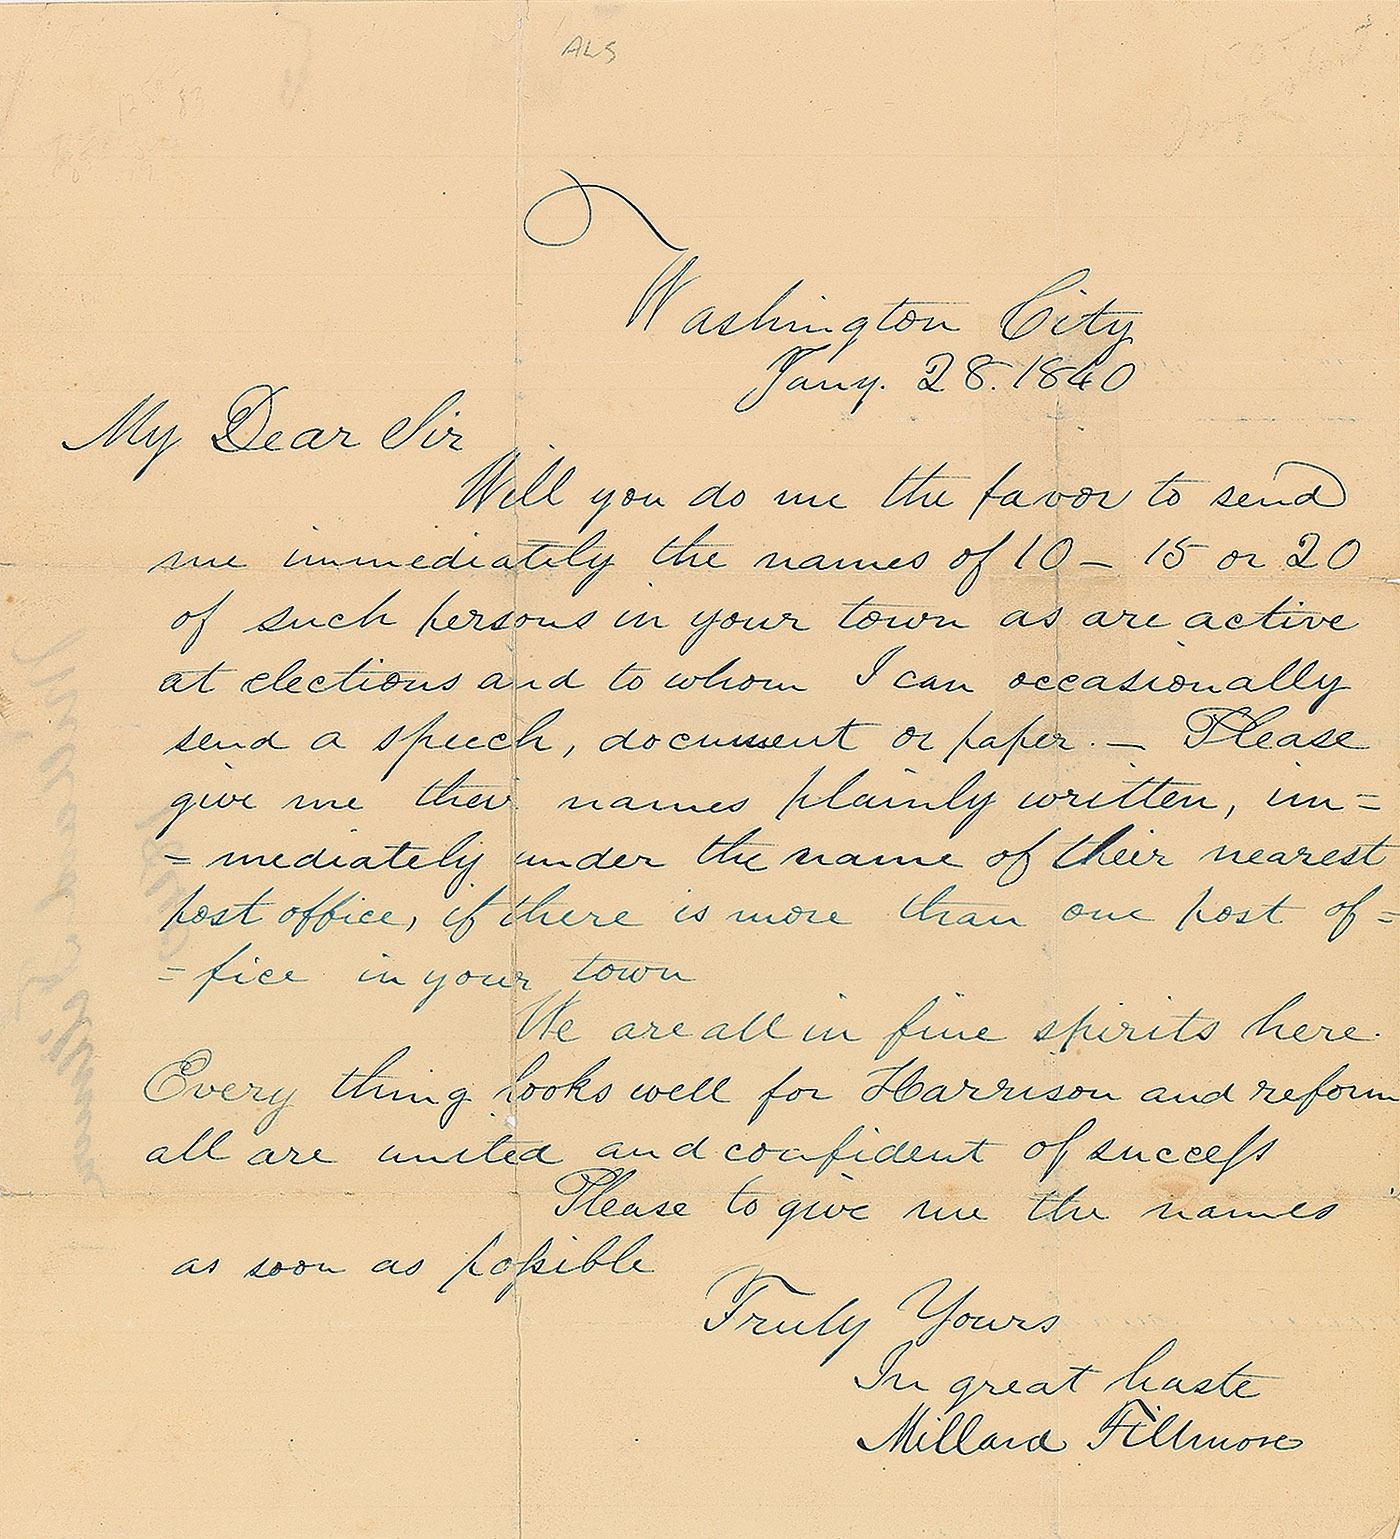 ALS
Washington City
Jany. 28. 1840
My Dear Sir
Will you do me the favor to send
me immediately the names of 10 – 15 or 20
of such persons in your town as are active
at elections and to whom I can occasionally
send a speech, document or paper. — Please
give me their names plainly written, im=
=mediately under the name of their nearest
post office, if there is more than one post of=
=fice in your town
We are all in fine spirits here.
Every thing looks well for Harrison and reform
all are united and confident of success
Please to give me the names
as soon as possible
Truly Yours
In great haste
Millard Fillmore